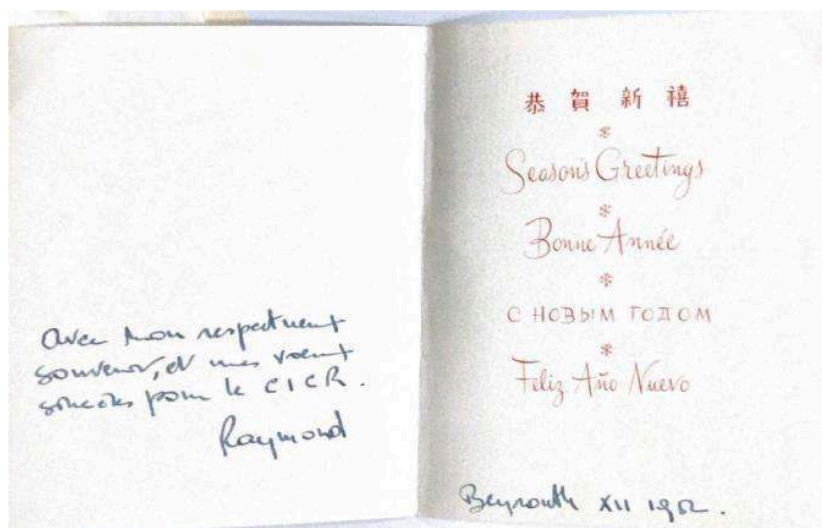 avec mon respectueux
souvenir, et mes voeux
sincères pour le CICR.
Raymond
恭賀新禧
*
Season's Greetings
*
Bonne Année
*
С НОВЫМ ГОДОМ
*
Feliz Año Nuevo
Beyrouth XII 1952.